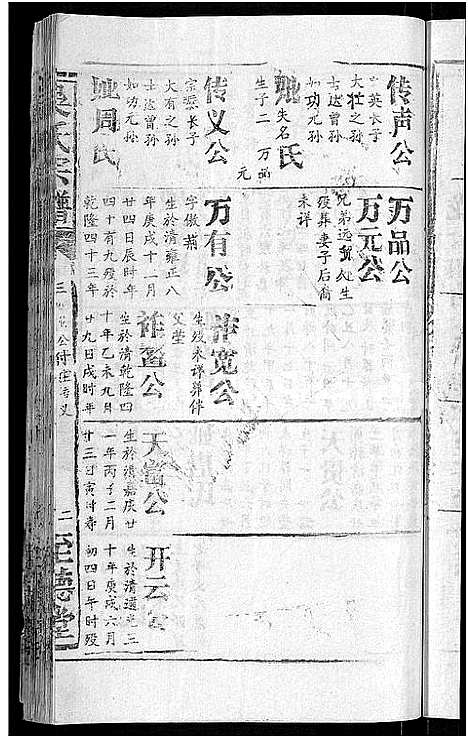 传声公
英长子
大壮之孙
士达曾孙
如功元孙
妣失名氏
生子二 万品
元
传义公
宗懋长子
大有之孙
士达曾孙
如功元孙
妣周氏
万品公
万元公
兄弟远
生
殁葬妻子后裔
未详
万有公
字傲
生於清雍正八
年庚戌十一月
廿四日辰时年
四十有九殁於
乾隆四十三年
祚宽公
生殁未详葬伴
父茔
祚盈公
生於清乾隆四
十年乙未九月
廿九日戌时年
天富公
生於清嘉庆廿
一年丙子二月
廿三日寅时寿
开云公
生於清道光三
十年庚戌六月
初四日午时殁
吴氏宗谱
三
二
至德堂